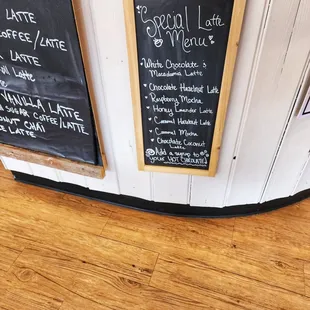 LATTE
COFFEE/LATTE
LATTE
Latte
VANILLA LATTE
SUGAR COFFEE/LATTE
CHAI
LATTE
Special Latte
Menu
White Chocolate &
Macadamia Latte
Chocolate Hazelnut Latte
Raspberry Mocha
Honey Lavender
Latte
Caramel Hazelnut Latte
Caramel Mocha
Chocolate Coconut
Latte
Add a syrup to
your HOT CHOCOLATE!